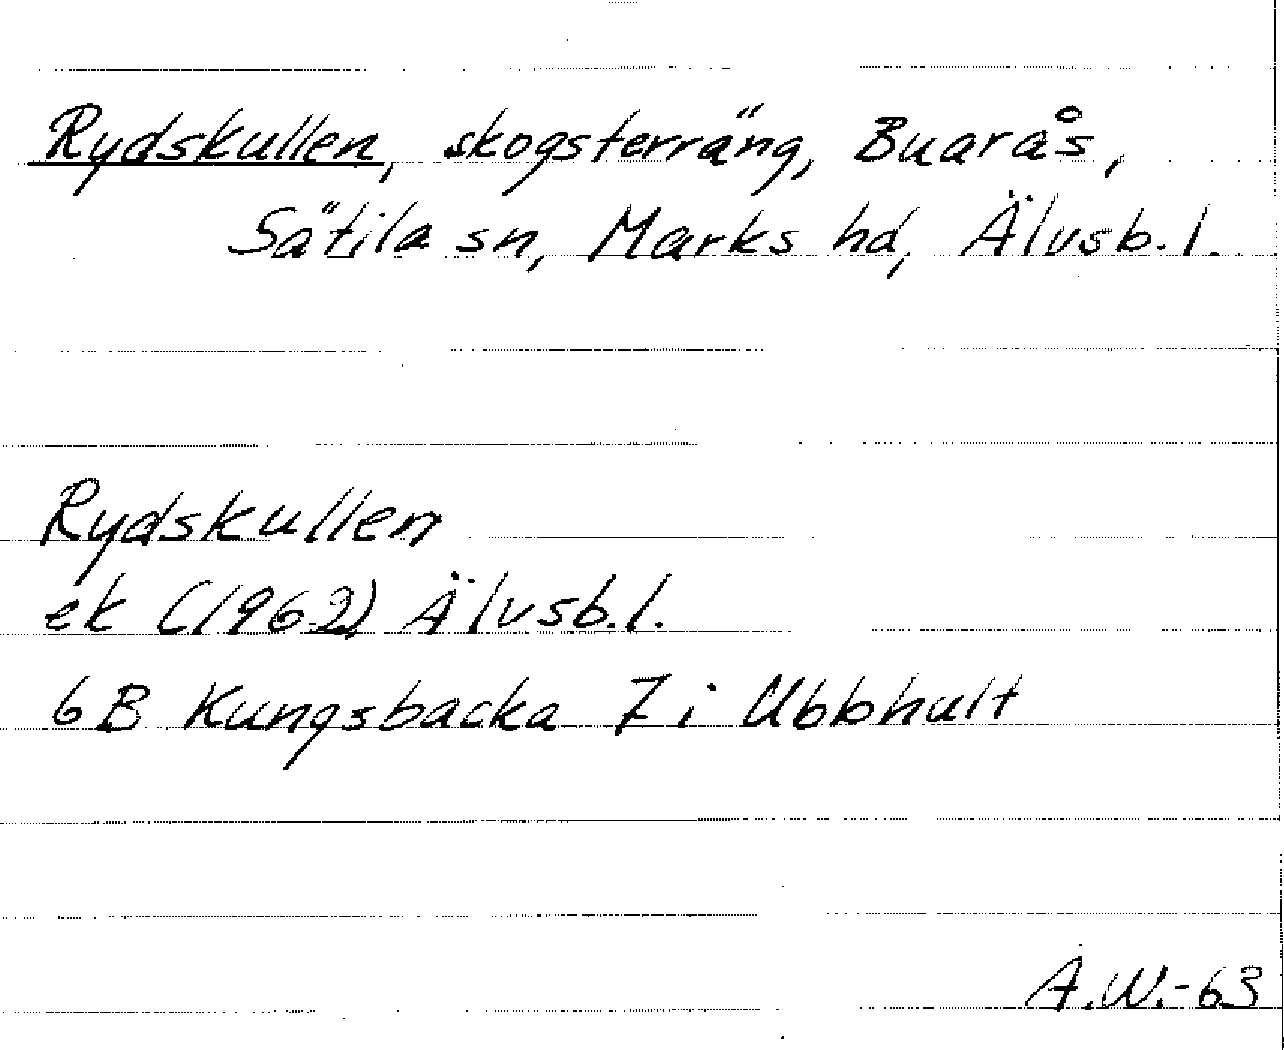 Rydskullen, skogsterräng, Buarås,
Sätila sn, Marks hd, Älvsb. l.
Rydskullen
ek (1962) Älvsb. l.
6B Kungsbacka 7 i Ubbhult
A.W.-63